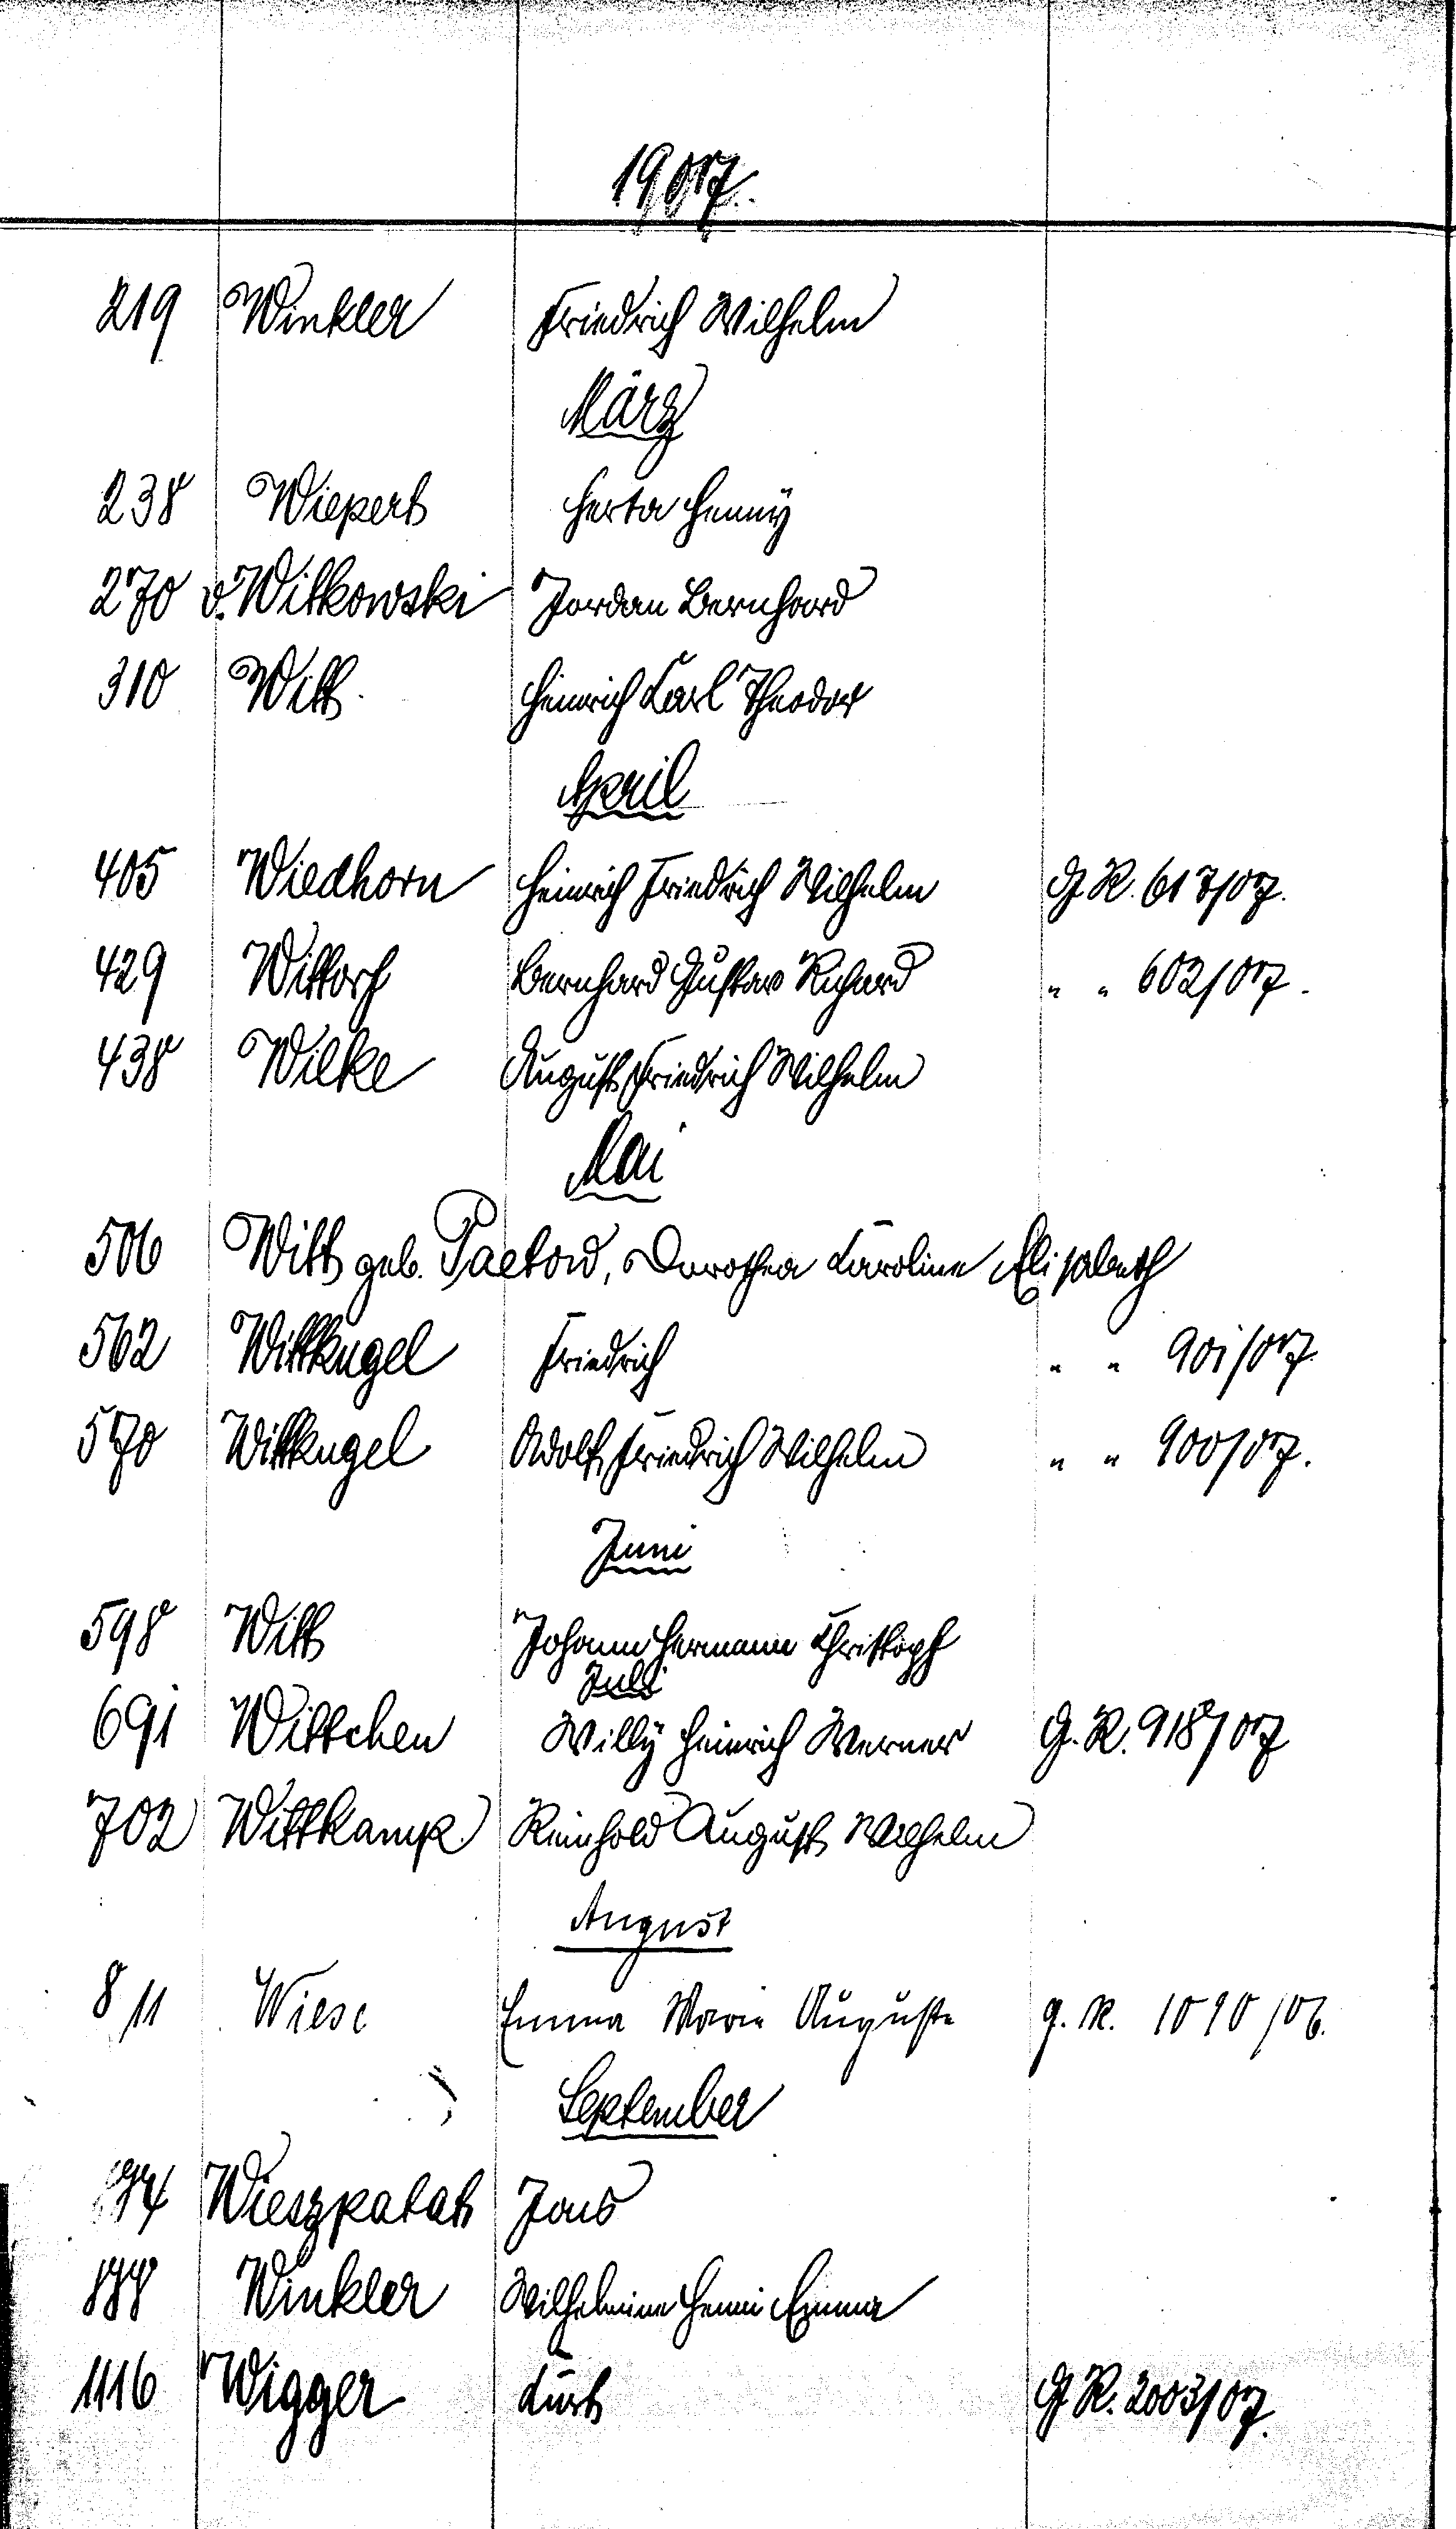 1907.
219 Winkler Friedrich Wilhelm
März
238 Wiepert Herta Henny
270 v. Witkowski Jordan Bernhard
310 Witt Heinrich Karl Theodor
April
405 Wiedhorn Heinrich Friedrich Wilhelm G R. 617/07.
429 Wittorf Bernhard Gustav Richard " " 602/07.
438 Wilke August Friedrich Wilhelm
Mai
506 Witt geb. Paetow, Dorothea Karoline Elisabeth
562 Wittkugel Friedrich " " 901/07.
570 Wittkugel Adolf Friedrich Wilhelm " " 900/07.
Juni
598 Witt Johann Hermann Christoph
Juli
691 Wittchen Willy Heinrich Werner G. R. 918/07
702 Wittkamp Reinhold August Wilhelm
August
811 Wiese Emma Marie Auguste G. R. 1090/06.
September
Wieszpatat
Winkler Wilhelmine Henni Emma
1116 Wigger Kurt G R. 2003/07.